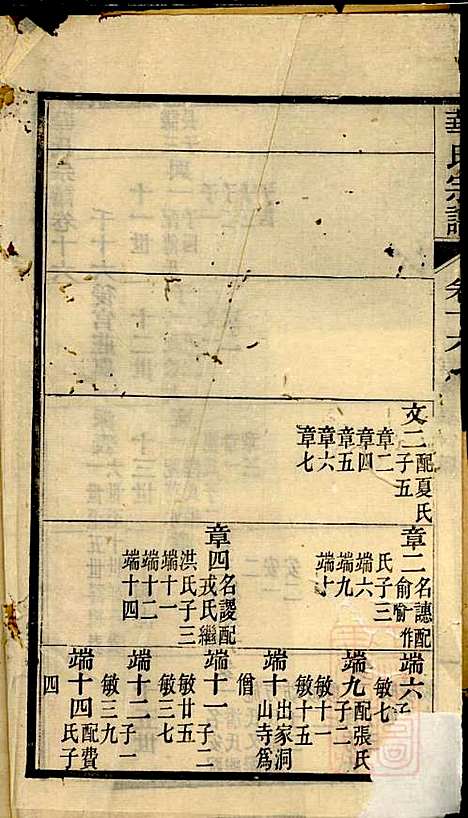 華氏宗譜
卷十六
文二配夏氏
子五
章二
章四
章五
章六
章七
章二名譓配
俞喻作
氏子三
端六
端九
端十
章四名謖配
戎氏繼
洪氏子三
端十一
端十二
端十四
端六子
敏七
端九配張氏
子二
敏十一
敏十五
端十出家洞
山寺爲
僧
端十一子二
敏廿五
敏三七
端十二子一
敏三九
端十四配費
氏子
四